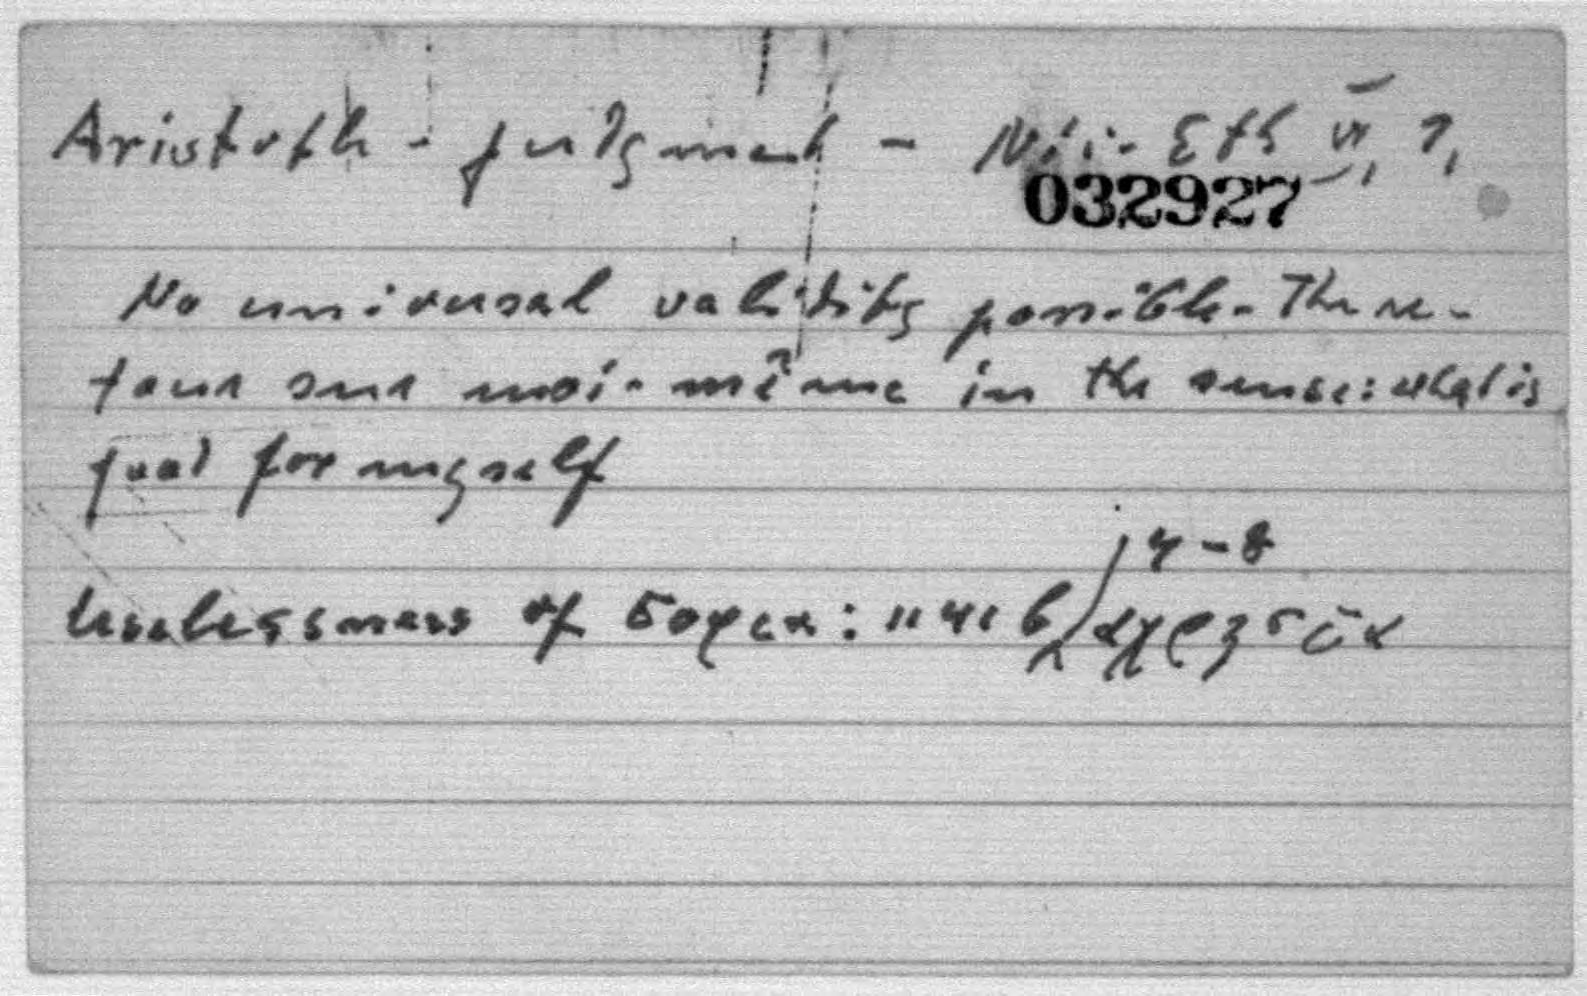 Aristotle - judgment - Nic. Eth VI, 7,
032927
No universal validity possible. The re-
tour sur moi-même in the sense: what is
good for myself
4-8
Uselessness of σοφια: 1141 b ἄχρηστα